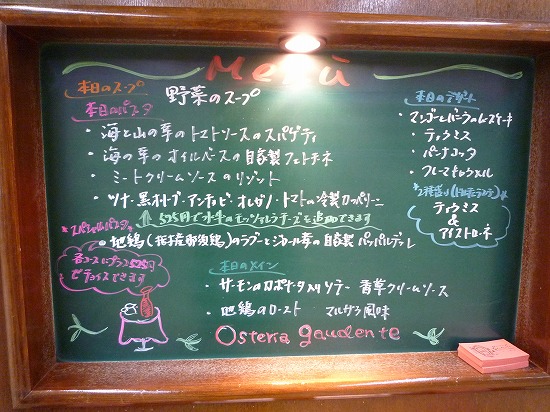 Menu
本日のスープ
野菜のスープ
本日のパスタ
・海と山の幸のトマトソースのスパゲティ
・海の幸のオイルベースの自家製フェトチーネ
・ミートクリームソースのリゾット
・ツナ・黒オリーブ・アンチョビ・オレガノ・トマトの冷製カッペリーニ
↑525円で水牛のモッツァレラチーズを追加できます
スペシャルパスタ
・地鶏(花捜那須鶏)のラグーとジロール茸の自家製パッパルデッレ
各コースにプラス525円でチョイスできます
本日のメイン
・サーモンのカポナータ入りソテー 香草クリームソース
・地鶏のロースト マルサラ風味
Osteria gaudente
本日のデザート
・マンゴーとババロアのムースケーキ
・ティラミス
・パンナコッタ
・クレーマキャラメル
2種盛り
ティラミス
&
アイストローネ